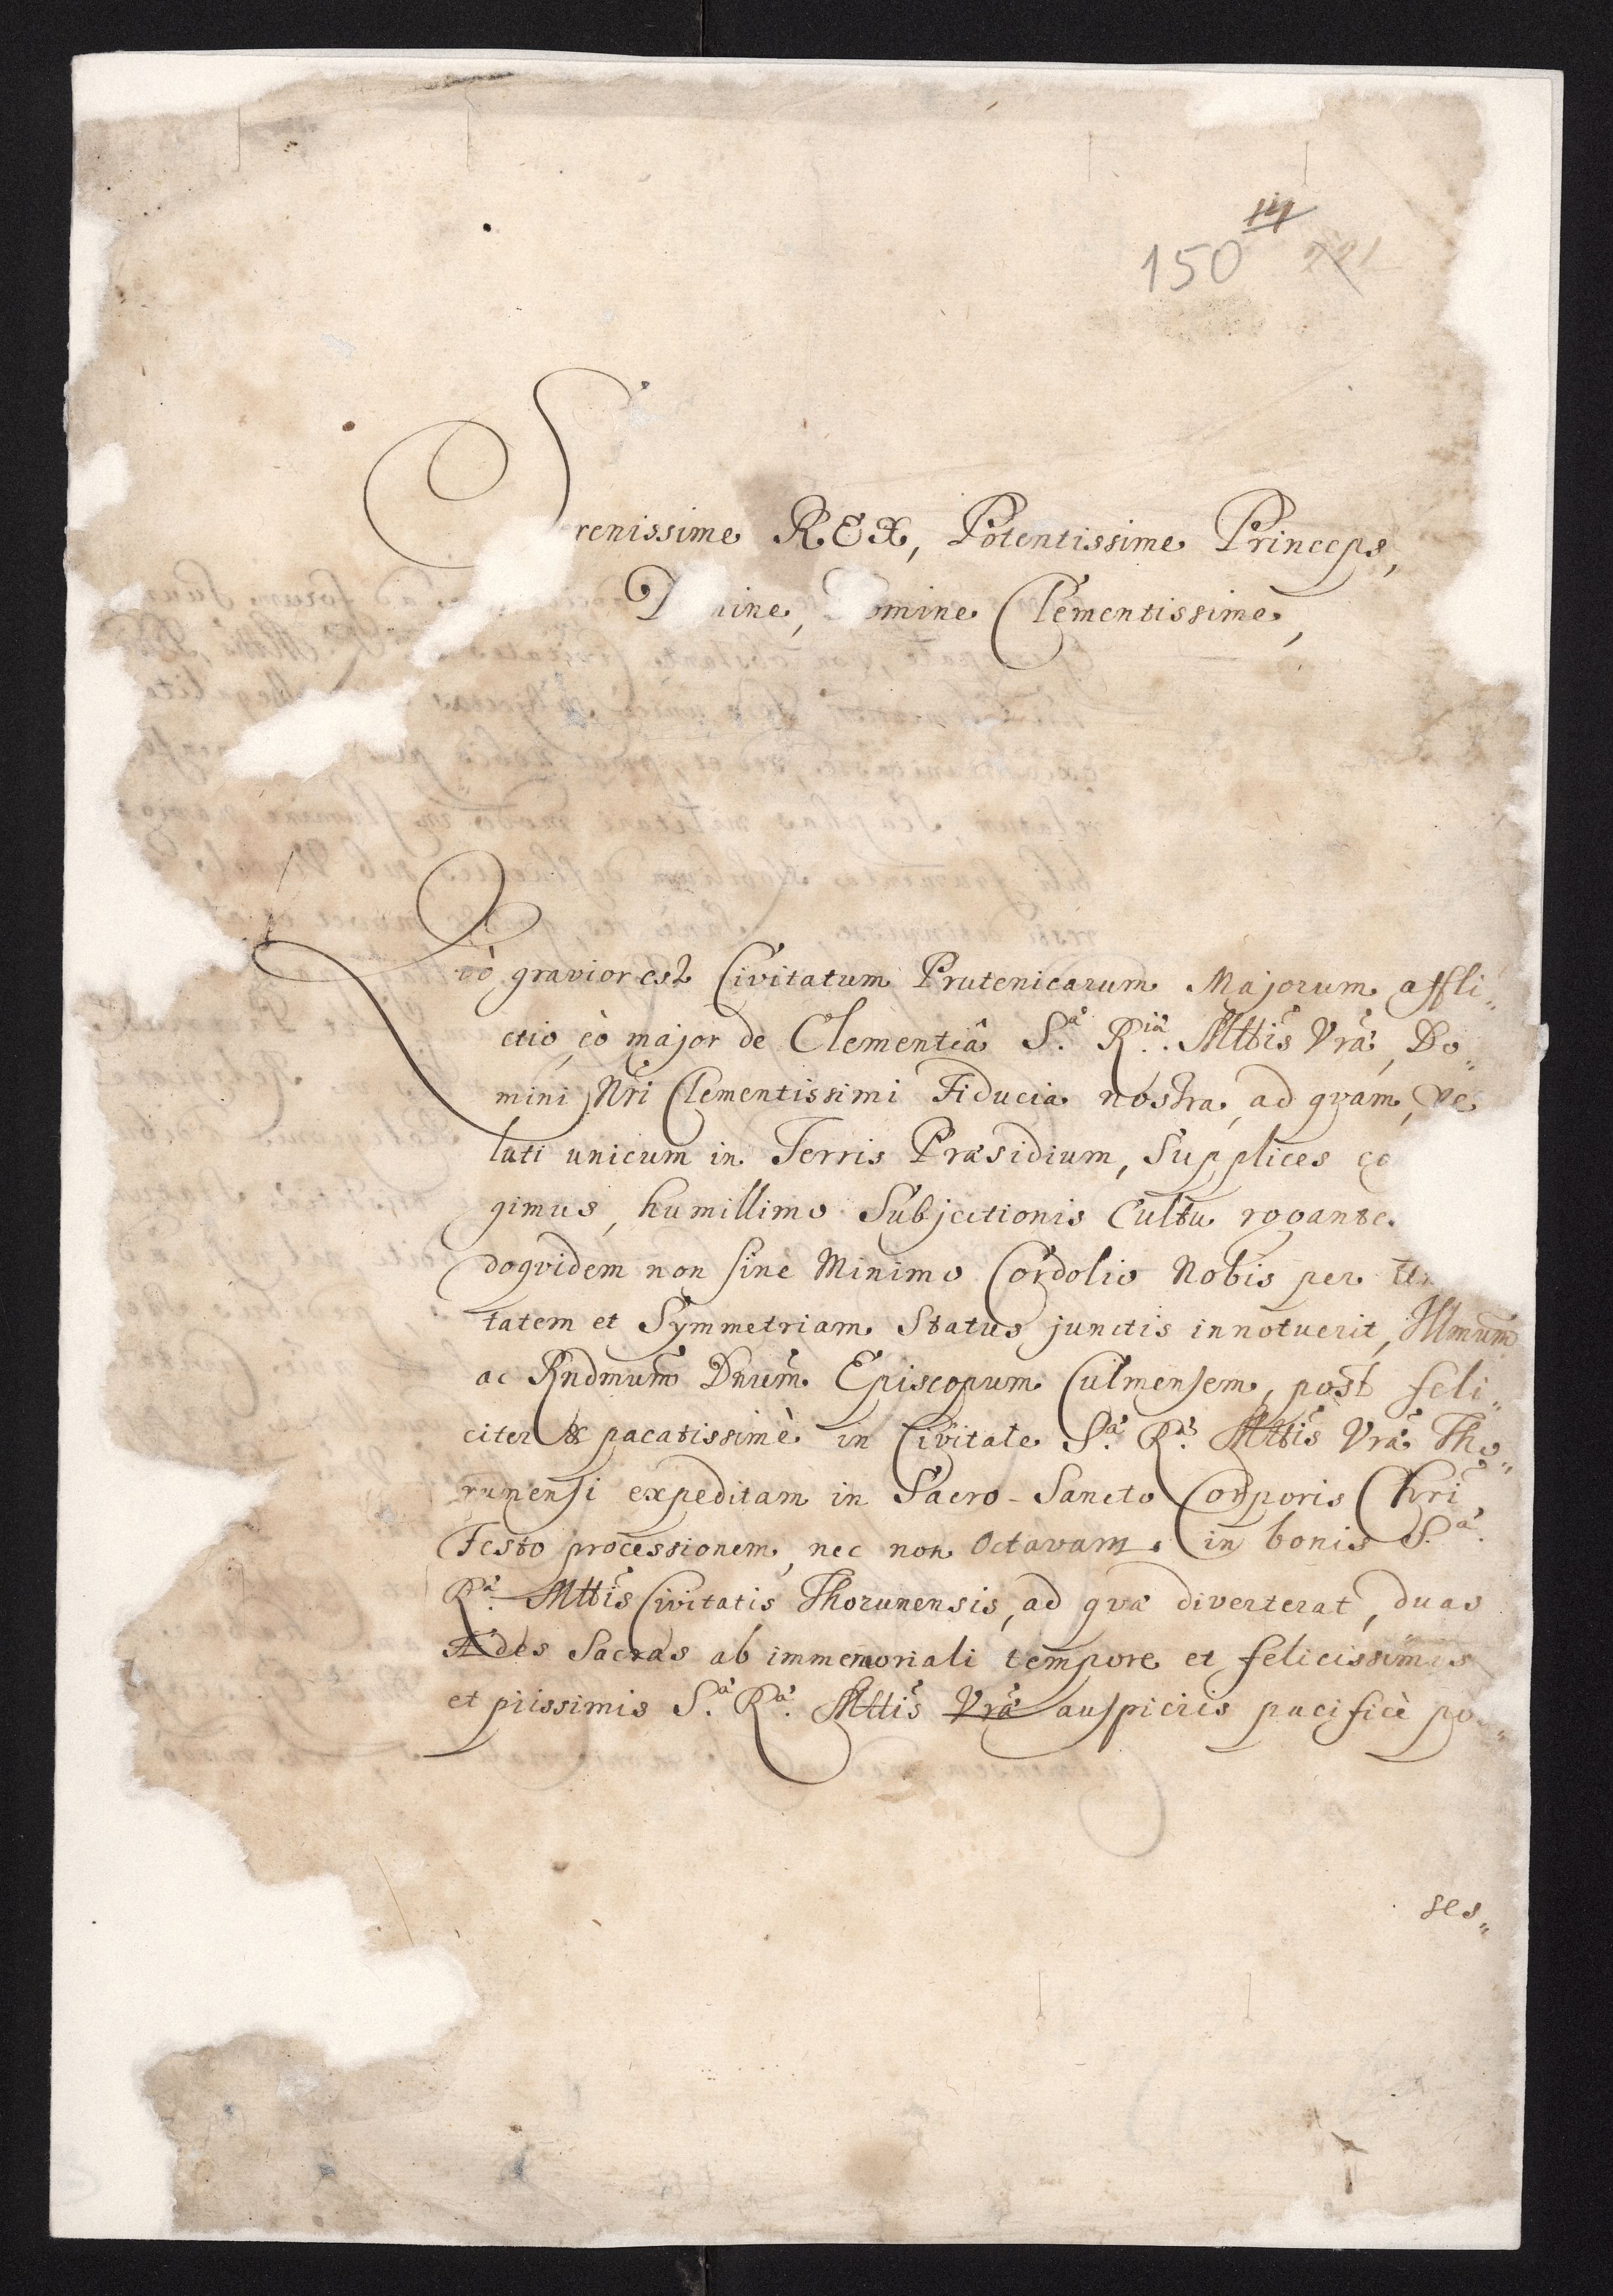 150
221
renissime REX, Potentissime Princeps,
Domine, Domine Clementissime,
Qvò gravior est Civitatum Prutenicarum Majorum affli„
ctio, eò major de Clementiâ S.ae R.iae Mttis Vrae, Do„
mini Nri Clementissimi Fiducia nostra, ad qvam, ve
luti unicum in Terris Præsidium, Supplices co
gimus, humillimo Subjectionis Cultu rogante
doqvidem non sine Minimo Cordolio Nobis per
tatem et Symmetriam Status junctis innotuerit, Illmum
ac Rndmum Dnum Episcopum Culmensem, post feli„
citer & pacatissimè in Civitate S.ae R.ae Mttis Vrae Tho„
runensi expeditam in Sacro-Sancto Corporis Chri
Festo processionem, nec non Octavam, in bonis S.ae
R.ae Mttis Civitatis Thorunensis, ad qvæ diverterat, duas
Ædes Sacras ab immemoriali tempore et felicissimis
et piissimis S.ae R.ae Mttis Vrae auspiciis pacificè po
ses„